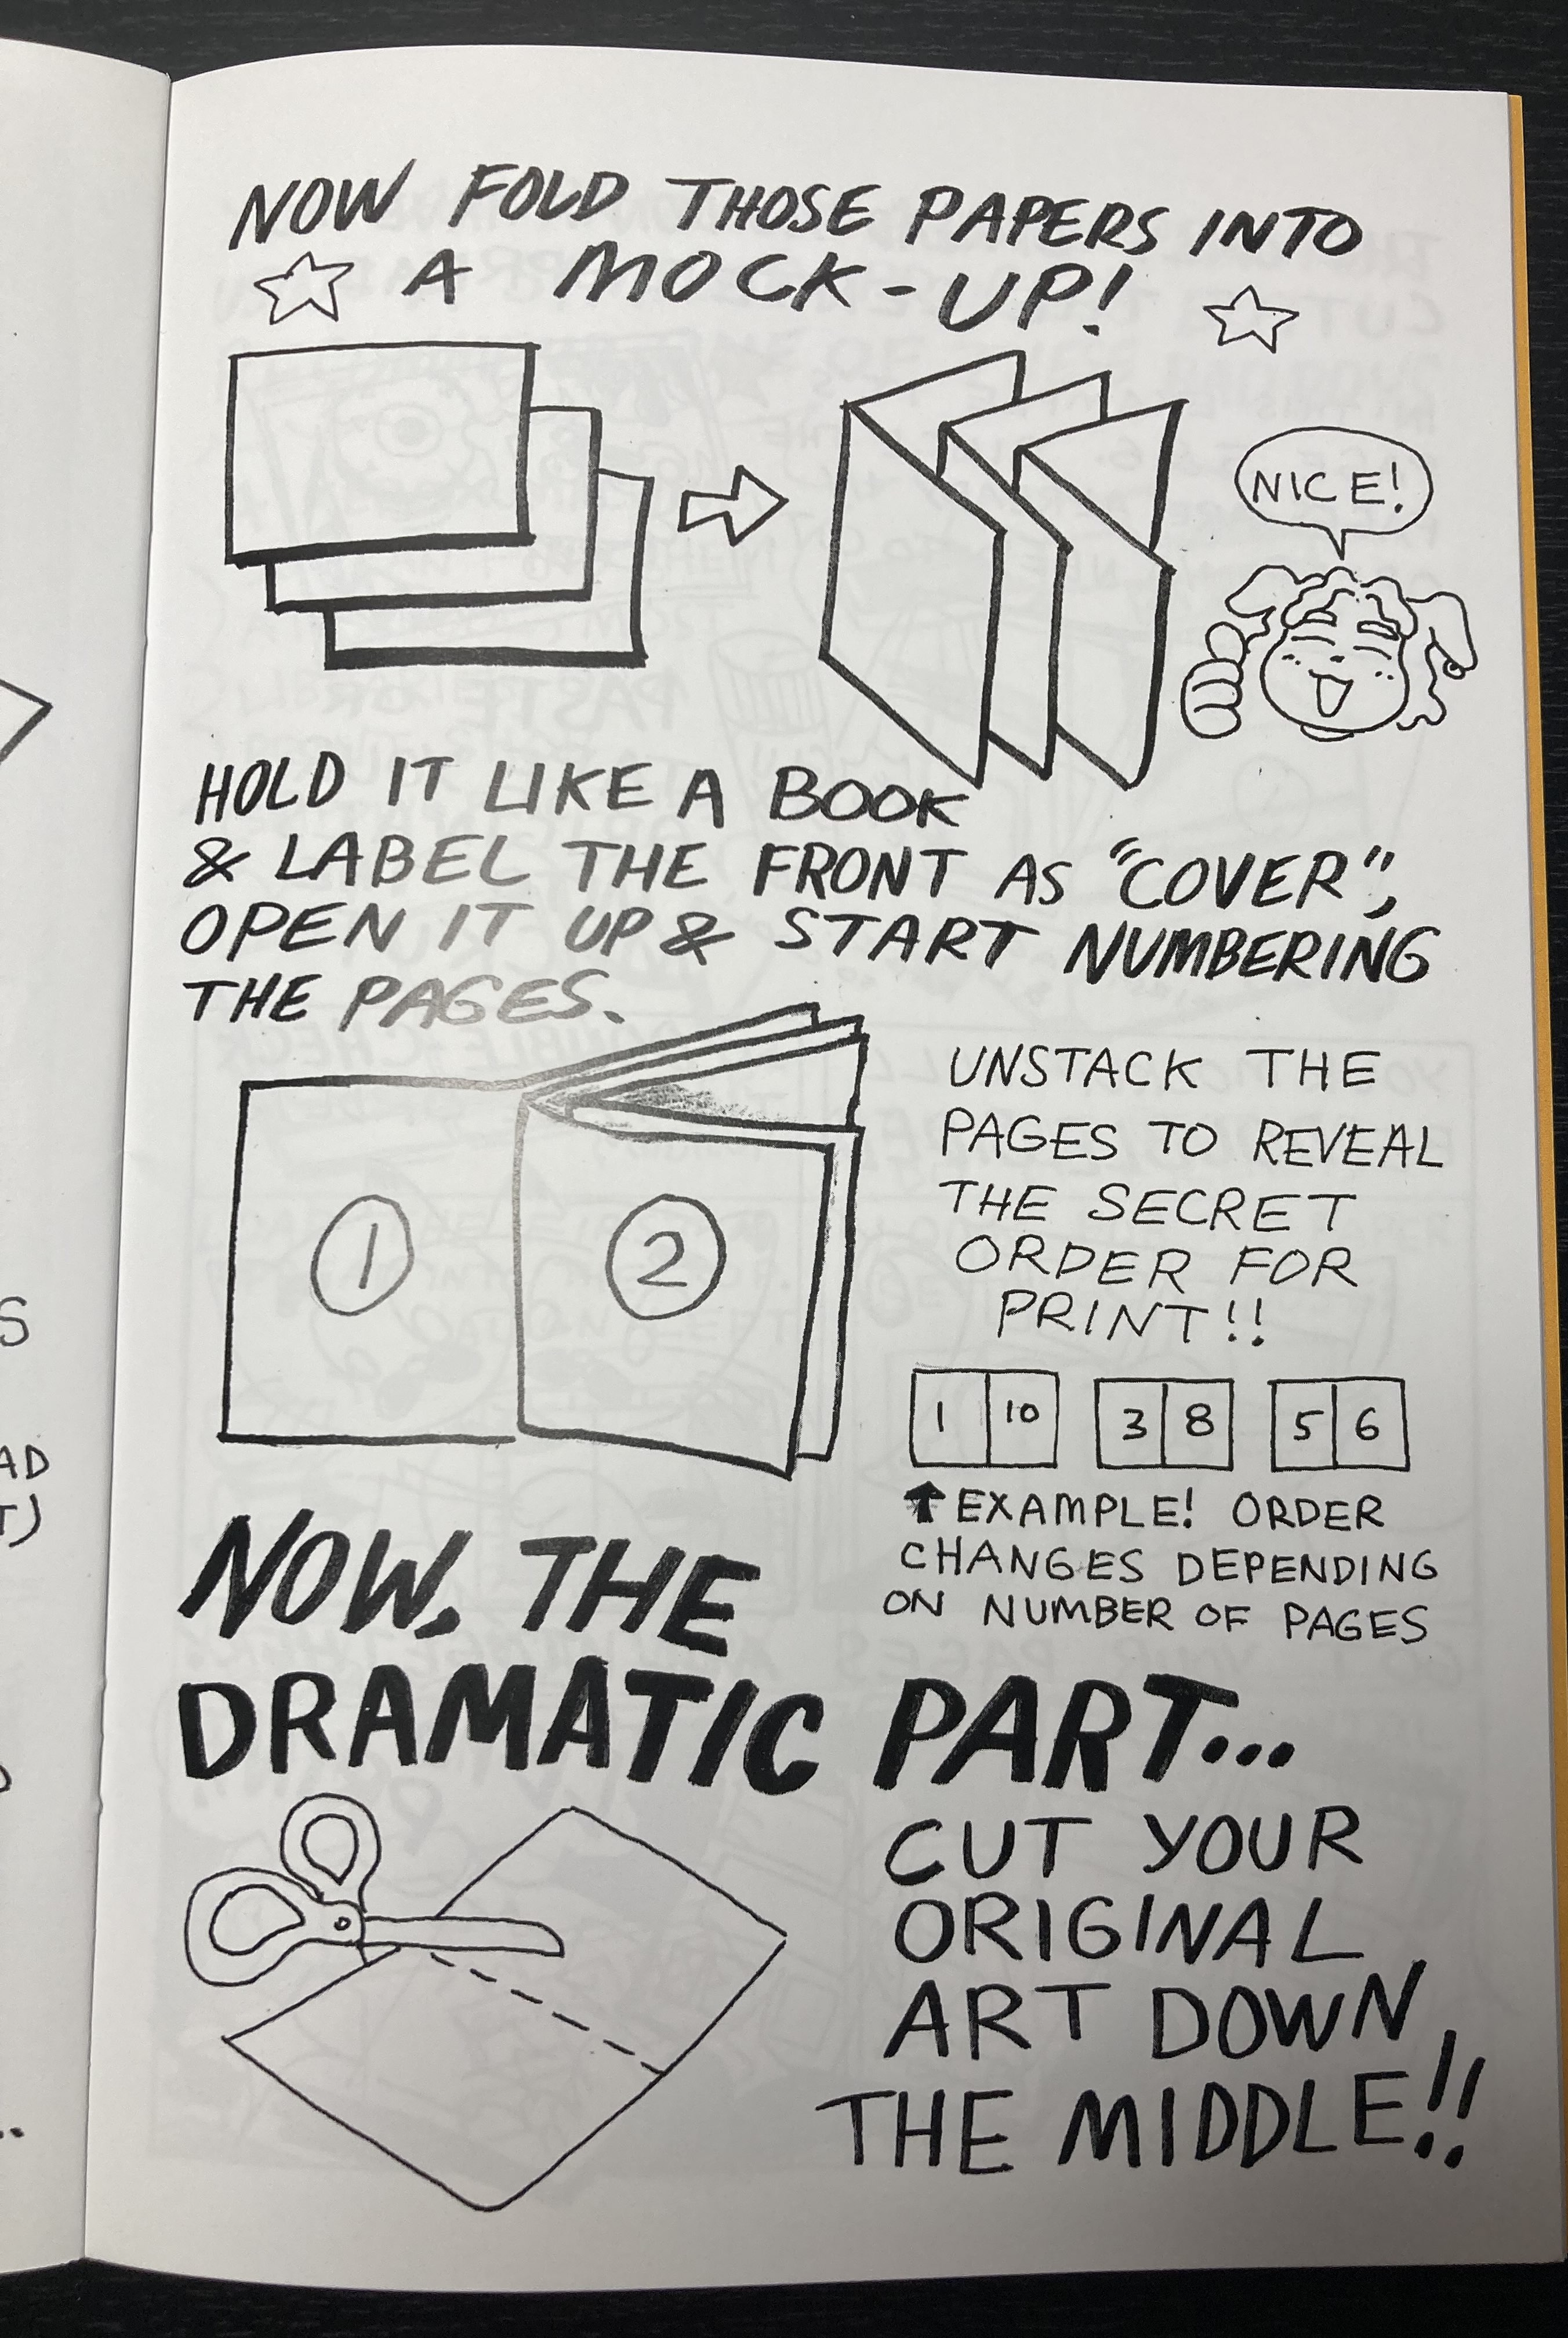 NOW FOLD THOSE PAPERS INTO
A MOCK-UP!
NICE!
HOLD IT LIKE A BOOK
& LABEL THE FRONT AS "COVER",
OPEN IT UP & START NUMBERING
THE PAGES.
1
2
UNSTACK THE
PAGES TO REVEAL
THE SECRET
ORDER FOR
PRINT!!
1 10 3 8 5 6
EXAMPLE! ORDER
CHANGES DEPENDING
ON NUMBER OF PAGES
NOW, THE
DRAMATIC PART...
CUT YOUR
ORIGINAL
ART DOWN
THE MIDDLE!!